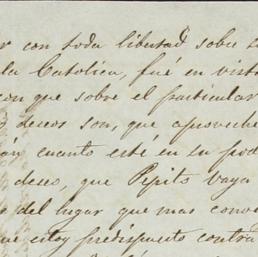 r con toda libertad sobre
la Catolica, fué en vista
con que sobre el particular
deseos son, que aproveche
cuanto esté en su pod
deseo, que Pepito vaya
del lugar que mas conv
ue estoy predispuesto contra